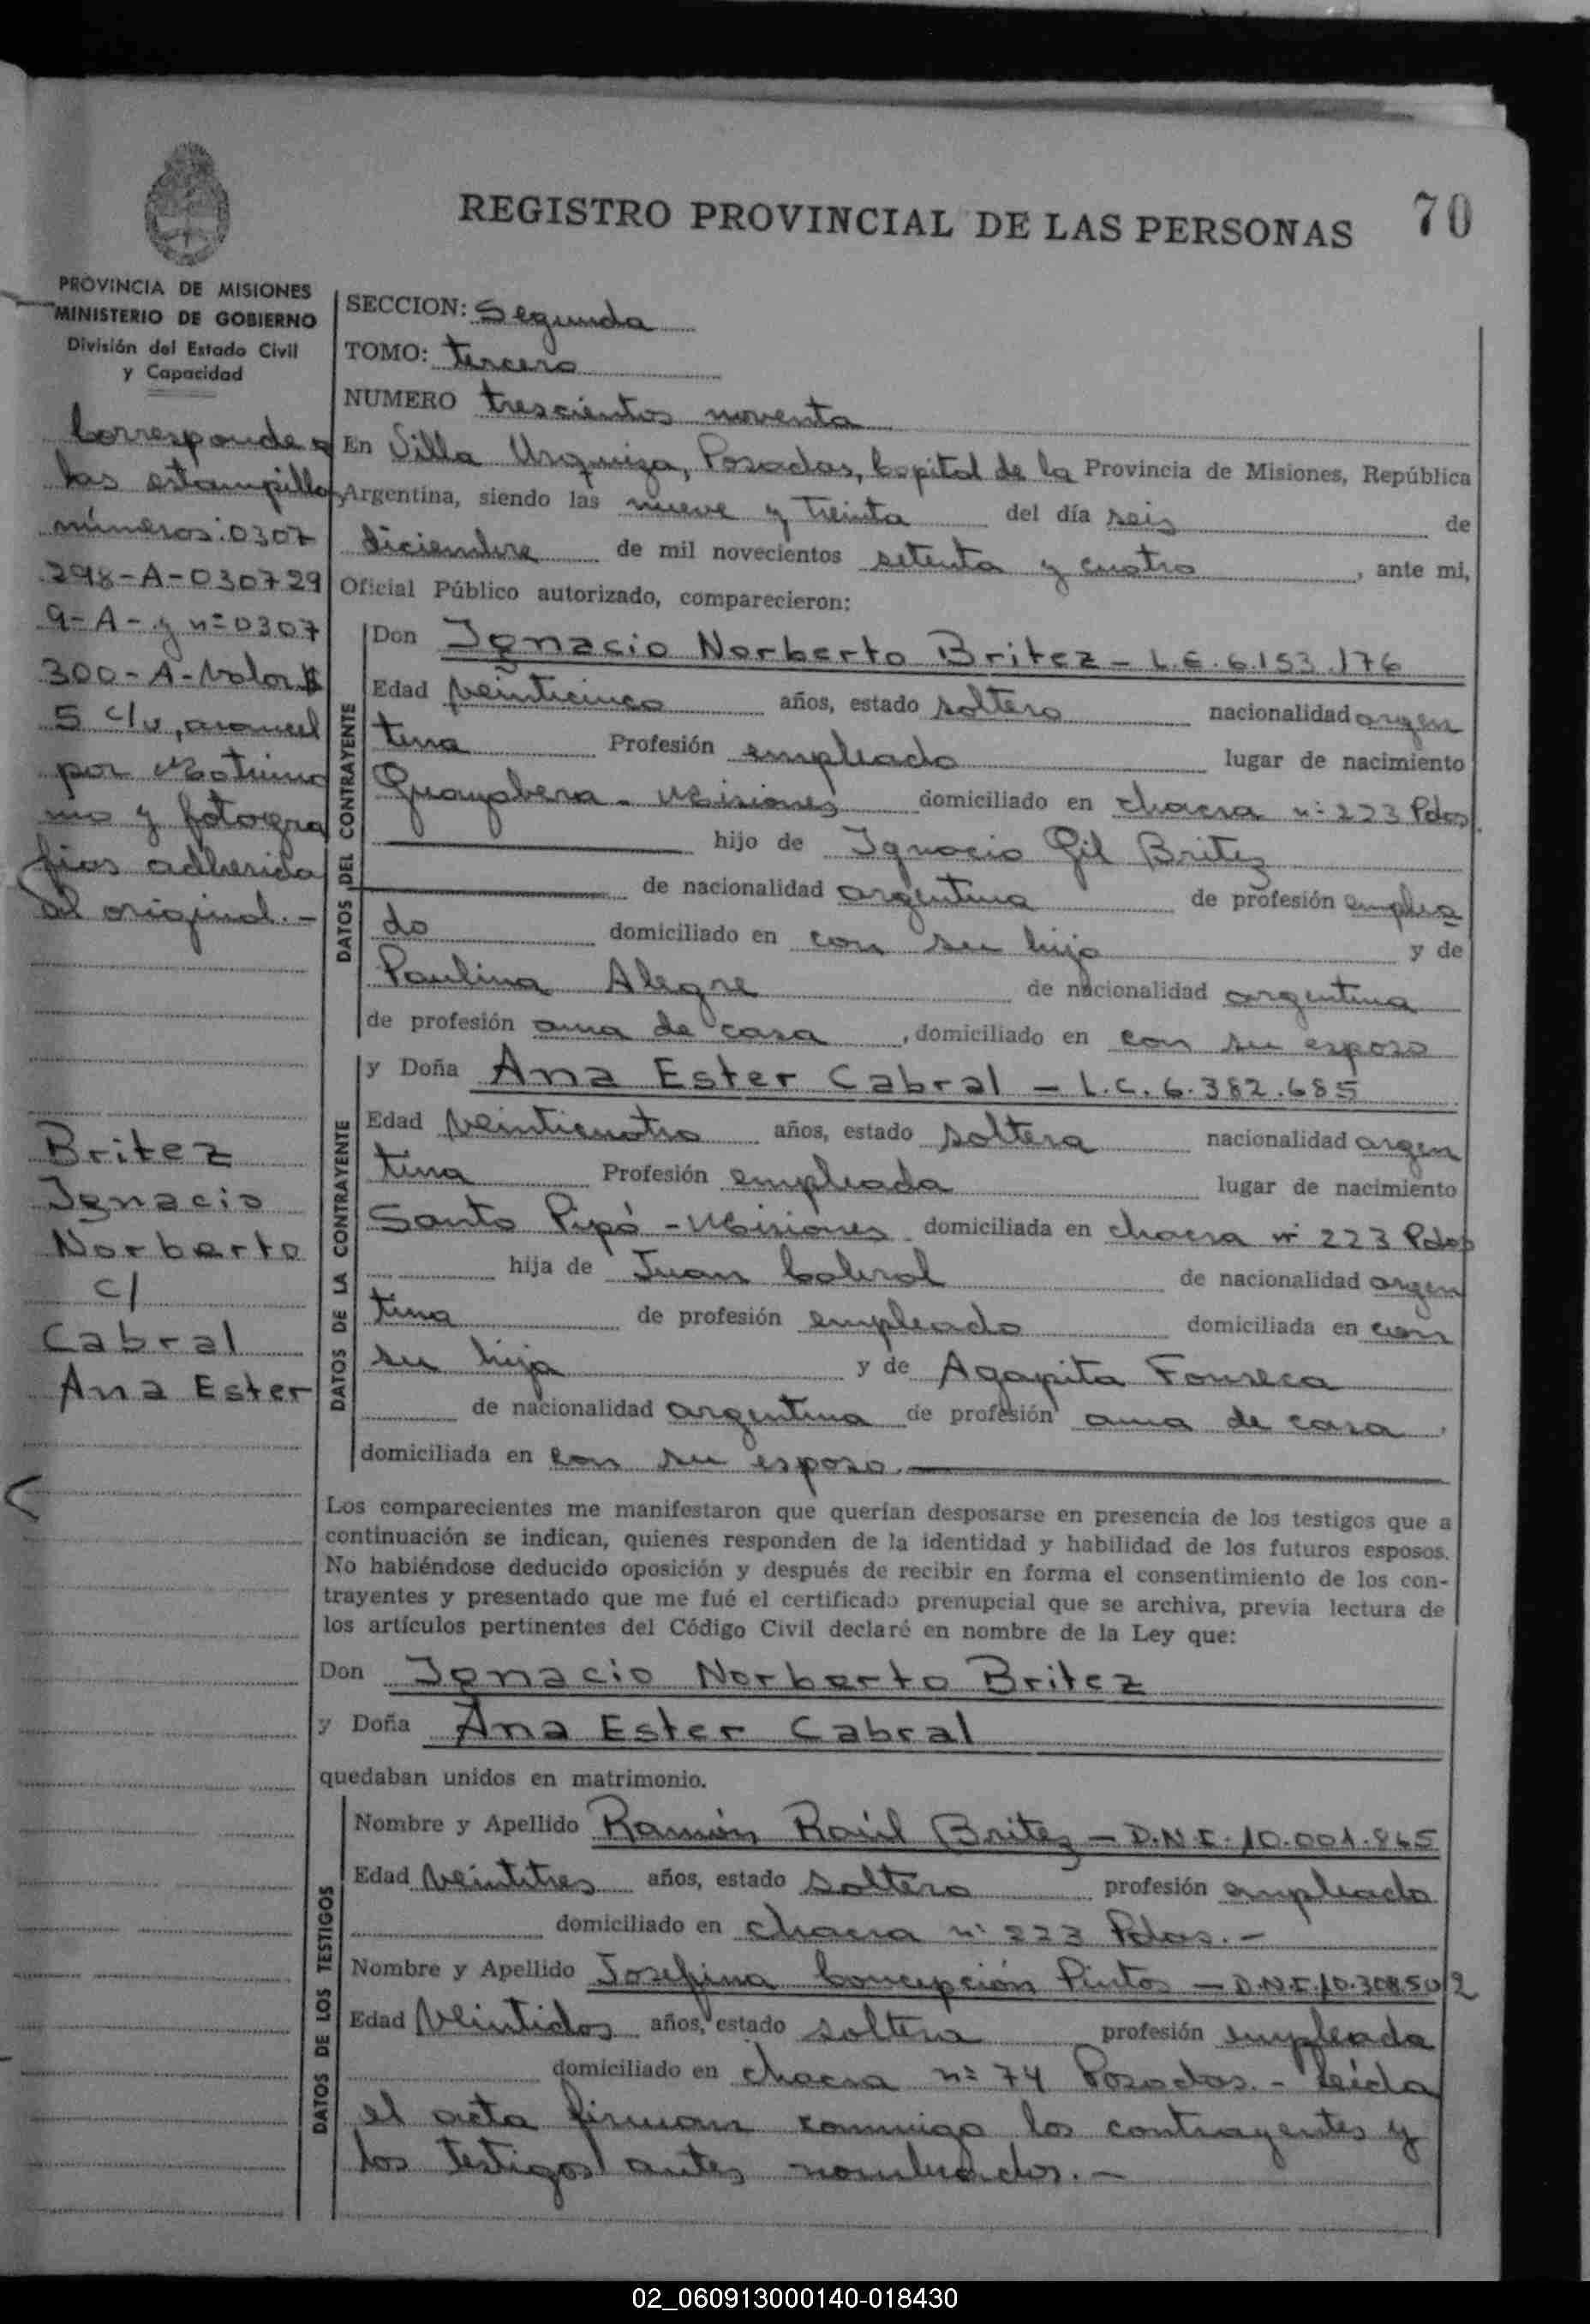 REGISTRO PROVINCIAL DE LAS PERSONAS
70
PROVINCIA DE MISIONES
MINISTERIO DE GOBIERNO
División del Estado Civil
y Capacidad
Corresponde a
las estampillas
números: 0307
298-A-030729
9-A- y nº 0307
300-A-Valor $
5 c/u, arancel
por Matrimo
nio y fotogra
fias adherida
al original.-
Britez
Ignacio
Norberto
c/
Cabral
Ana Ester
SECCION: Segunda
TOMO: tercero
NUMERO trescientos noventa
En Villa Urquiza, Posadas, Capital de la Provincia de Misiones, República
Argentina, siendo las nueve y treinta del día seis de
diciembre de mil novecientos setenta y cuatro, ante mi,
Oficial Público autorizado, comparecieron:
DATOS DEL CONTRAYENTE
Don Ignacio Norberto Britez - L.E. 6.153.176
Edad veinticinco años, estado soltero nacionalidad argen
tina Profesión empleado lugar de nacimiento
Guayabera - Misiones domiciliado en chacra nº 223 Pdas.
hijo de Ignacio Gil Britez
de nacionalidad argentina de profesión emplea
do domiciliado en con su hijo y de
Paulina Alegre de nacionalidad argentina
de profesión ama de casa, domiciliado en con su esposo
DATOS DE LA CONTRAYENTE
y Doña Ana Ester Cabral - L.C. 6.382.685
Edad veinticuatro años, estado soltera nacionalidad argen
tina Profesión empleada lugar de nacimiento
Santo Pipó - Misiones domiciliada en chacra nº 223 Pdas
hija de Juan Cabral de nacionalidad argen
tina de profesión empleado domiciliada en con
su hija y de Agapita Fonseca
de nacionalidad argentina de profesión ama de casa
domiciliada en con su esposo.
Los comparecientes me manifestaron que querían desposarse en presencia de los testigos que a
continuación se indican, quienes responden de la identidad y habilidad de los futuros esposos.
No habiéndose deducido oposición y después de recibir en forma el consentimiento de los con-
trayentes y presentado que me fué el certificado prenupcial que se archiva, previa lectura de
los artículos pertinentes del Código Civil declaré en nombre de la Ley que:
Don Ignacio Norberto Britez
y Doña Ana Ester Cabral
quedaban unidos en matrimonio.
DATOS DE LOS TESTIGOS
Nombre y Apellido Ramón Raúl Britez - D.N.I. 10.001.865
Edad veintitres años, estado soltero profesión empleado
domiciliado en chacra nº 223 Pdas.-
Nombre y Apellido Josefina Concepción Pintos - D.N.I. 10.308.502
Edad veintidos años, estado soltera profesión empleada
domiciliado en chacra nº 74 Posadas.- Leída
el acta firman conmigo los contrayentes y
los testigos antes nombrados.-
02_060913000140-018430